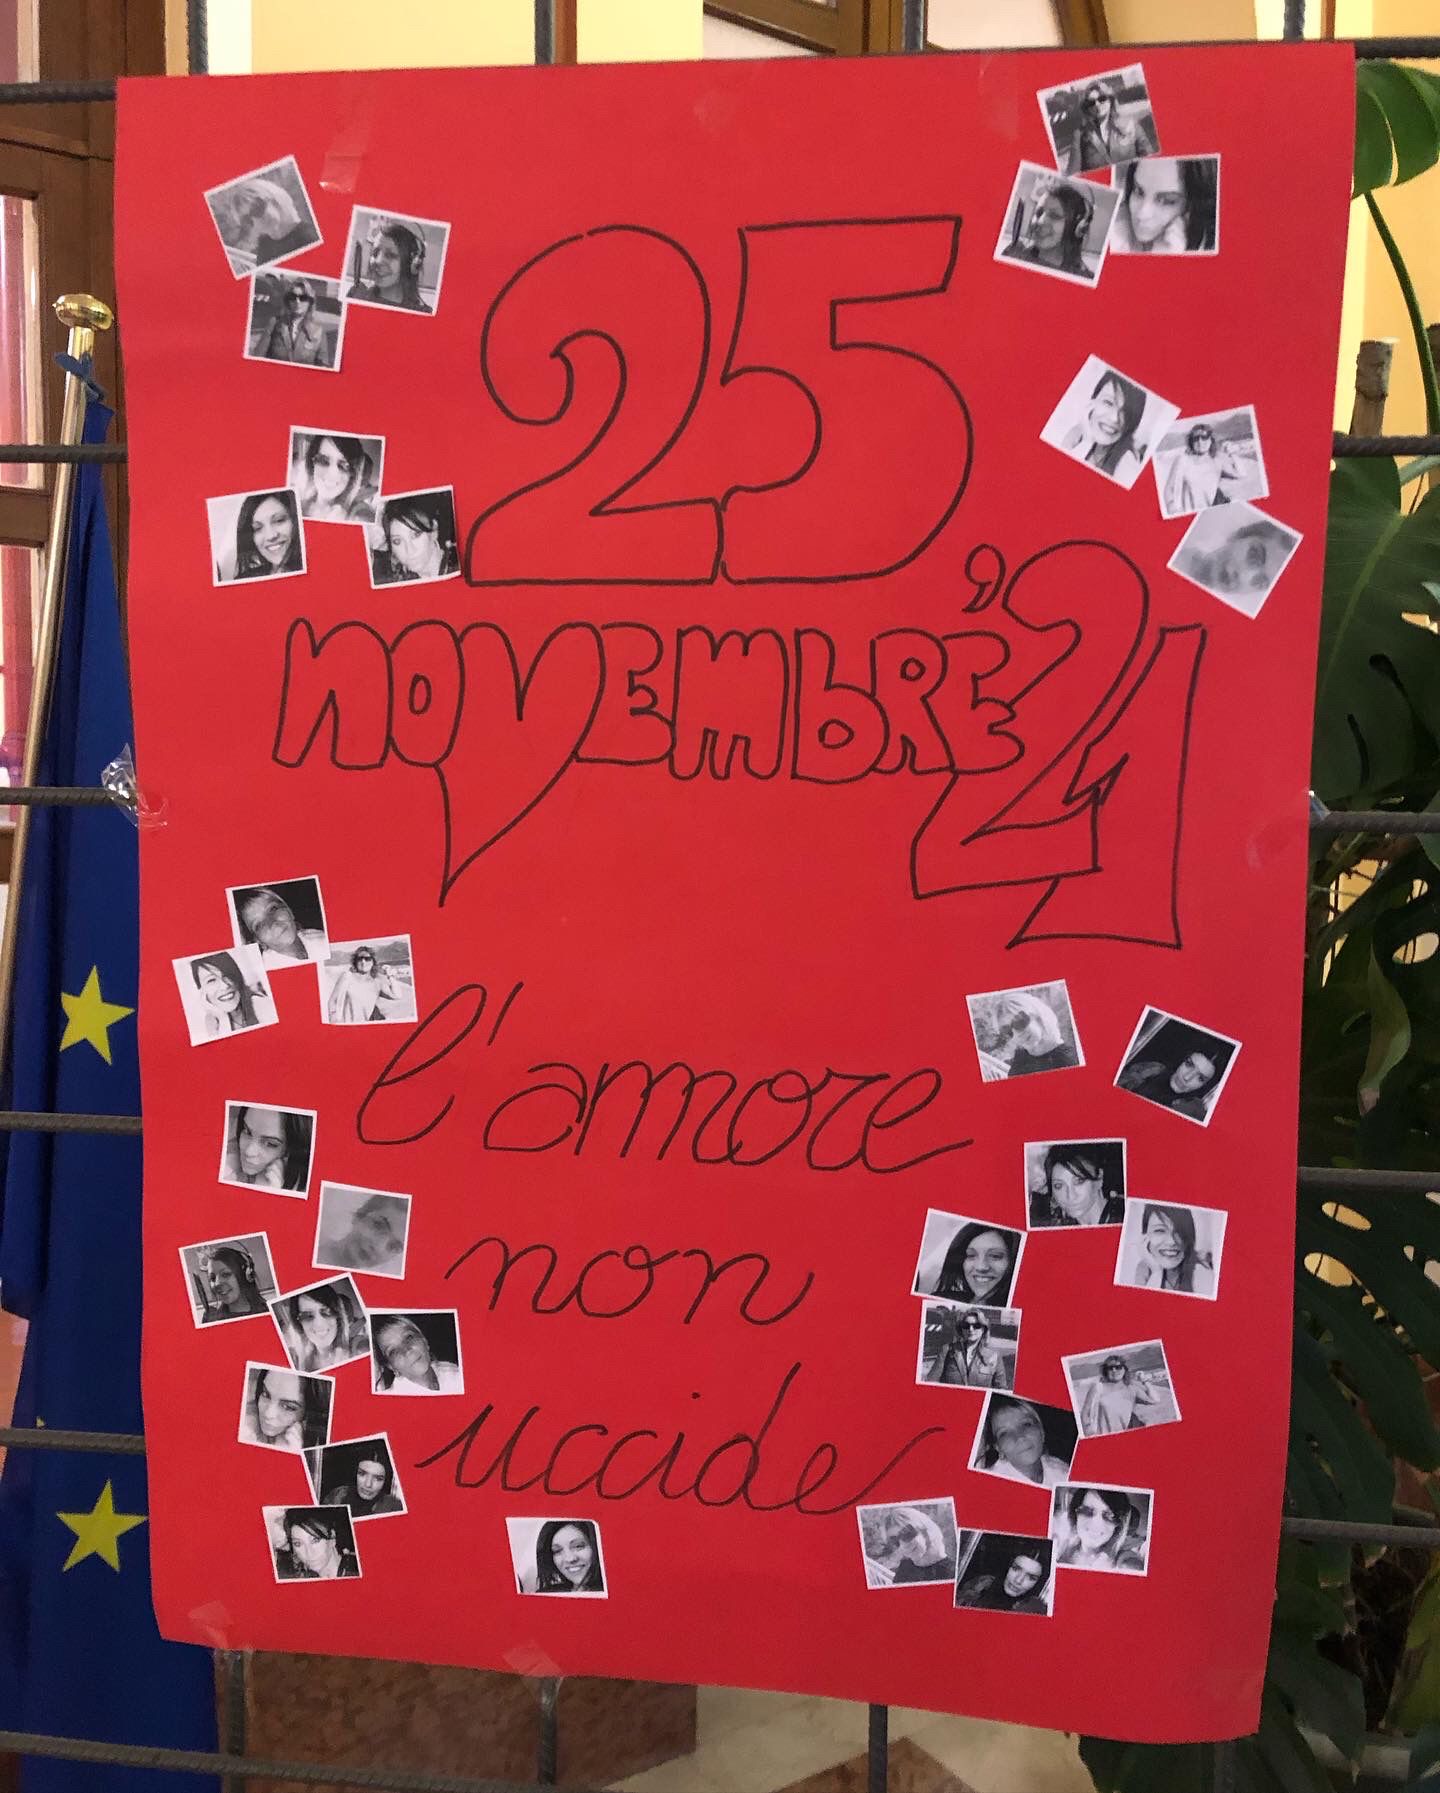 25
novembre '21
l'amore
non
uccide